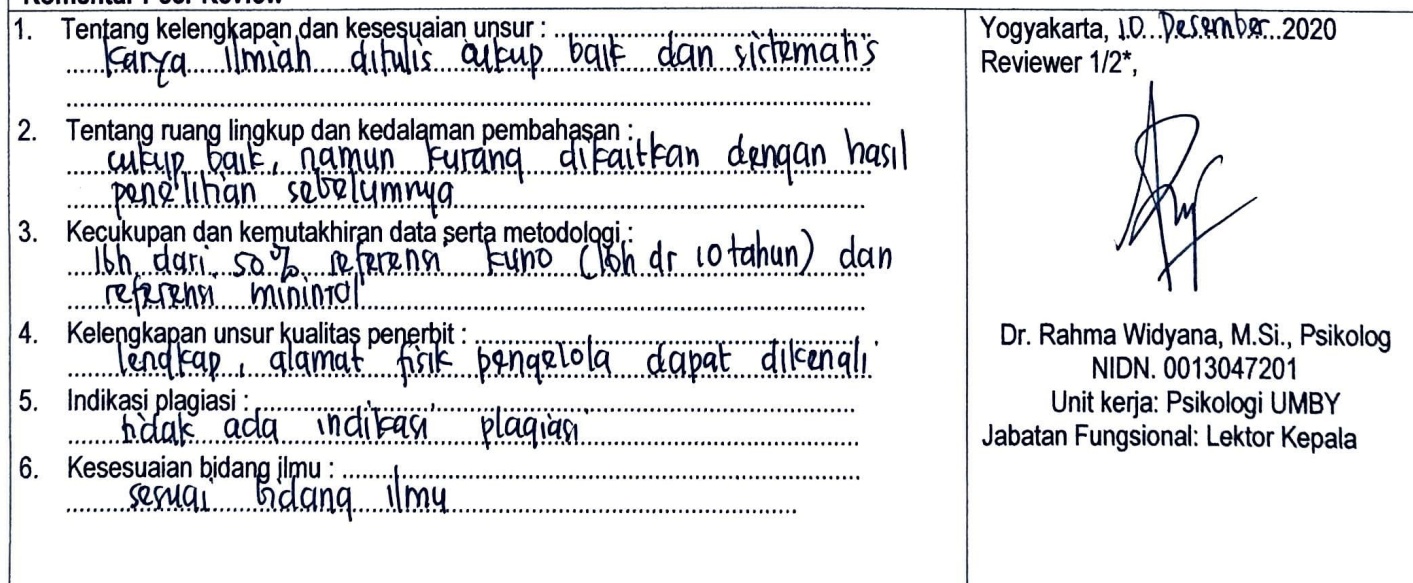 Komentar Peer Review
1. Tentang kelengkapan dan kesesuaian unsur :
Karya ilmiah ditulis cukup baik dan sistematis
2. Tentang ruang lingkup dan kedalaman pembahasan :
cukup baik, namun kurang dikaitkan dengan hasil
penelitian sebelumnya
3. Kecukupan dan kemutakhiran data serta metodologi :
lbh dari 50% referensi kuno (lbh dr 10 tahun) dan
referensi minimal
4. Kelengkapan unsur kualitas penerbit :
lengkap, alamat fisik pengelola dapat dikenali
5. Indikasi plagiasi :
tidak ada indikasi plagiasi
6. Kesesuaian bidang ilmu :
sesuai bidang ilmu
Yogyakarta, 10 Desember 2020
Reviewer 1/2*,
Dr. Rahma Widyana, M.Si., Psikolog
NIDN. 0013047201
Unit kerja: Psikologi UMBY
Jabatan Fungsional: Lektor Kepala